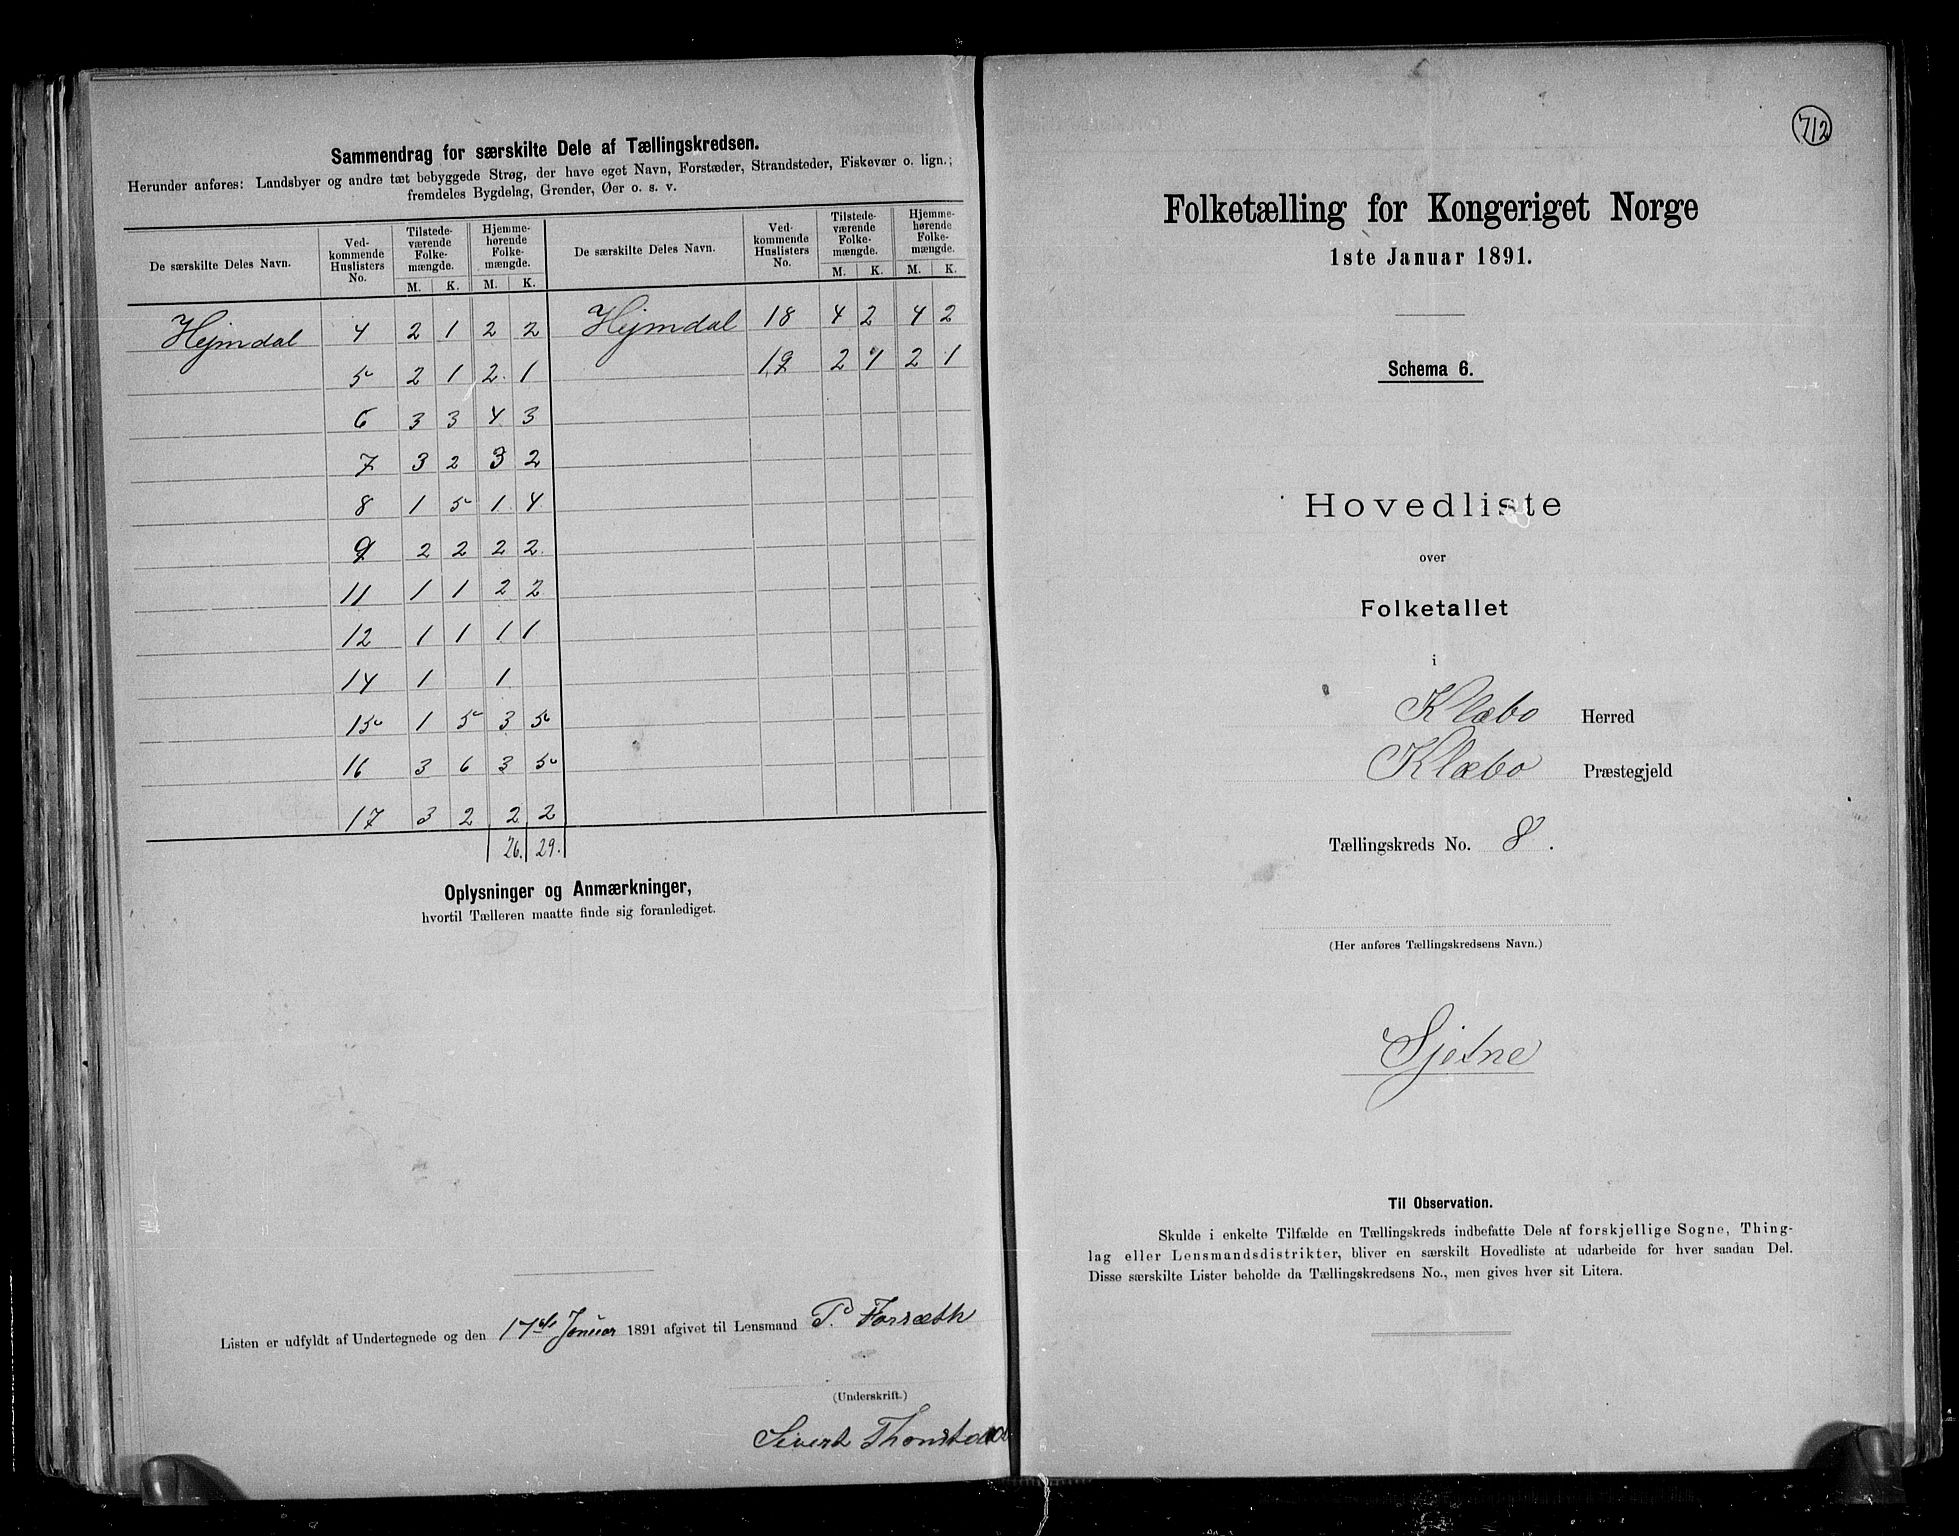 Sammendrag for særskilte Dele af Tællingskredsen.
Herunder anføres: Landsbyer og andre tæt bebyggede Strøg, der have eget Navn, Forstæder, Strandsteder, Fiskevær o. lign.;
fremdeles Bygdelag, Grender, Øer o. s. v.
De særskilte Deles Navn. Ved-kommende Huslisters No. Tilstede-værende Folke-mængde. Hjemme-hørende Folke-mængde. De særskilte Deles Navn. Ved-kommende Huslisters No. Tilstede-værende Folke-mængde. Hjemme-hørende Folke-mængde.
M. K. M. K. M. K. M. K.
Hejmdal 4 2 1 2 2 Hejmdal 18 4 2 4 2
5 2 1 2 1 19 2 1 2 1
6 3 3 4 3
7 3 2 3 2
8 1 5 1 4
9 2 2 2 2
11 1 1 2 2
12 1 1 1 1
14 1 1
15 1 5 3 5
16 3 6 3 5
17 3 2 2 2
26. 29.
Oplysninger og Anmærkninger,
hvortil Tælleren maatte finde sig foranlediget.
Listen er udfyldt af Undertegnede og den 17de Januar 1891 afgivet til Lensmand P. Forsæth
(Underskrift.)
Sivert
712
Folketælling for Kongeriget Norge
1ste Januar 1891.
Schema 6.
Hovedliste
over
Folketallet
i
Klæbo Herred
Klæbo Præstegjeld
Tællingskreds No. 8.
(Her anføres Tællingskredsens Navn.)
Sjetne
Til Observation.
Skulde i enkelte Tilfælde en Tællingskreds indbefatte Dele af forskjellige Sogne, Thing-
lag eller Lensmandsdistrikter, bliver en særskilt Hovedliste at udarbeide for hver saadan Del.
Disse særskilte Lister beholde da Tællingskredsens No., men gives hver sit Litera.